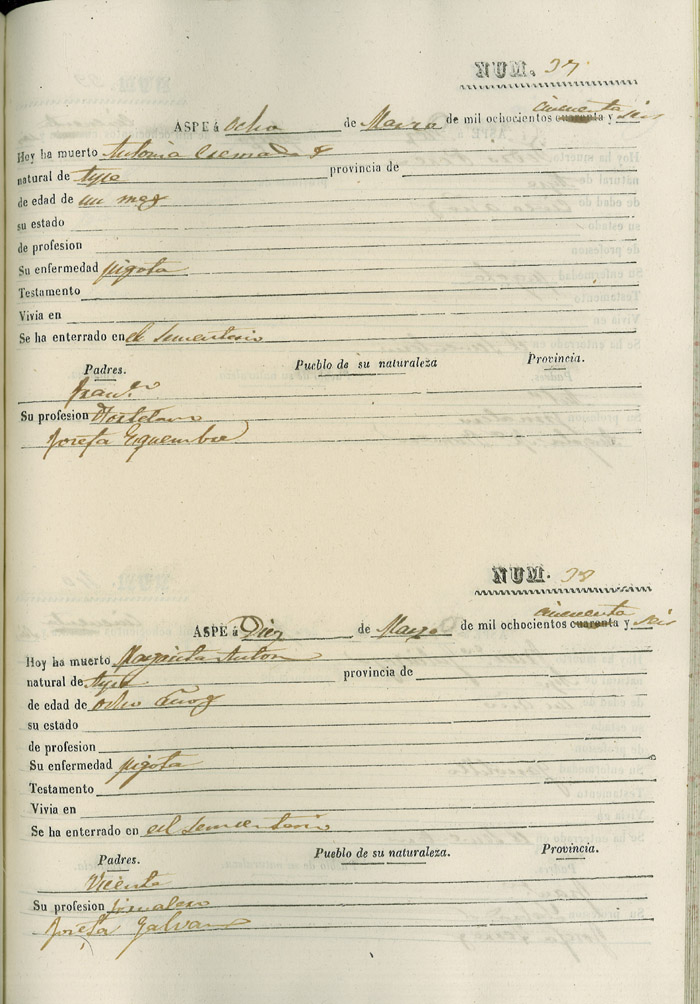 NUM. 37
cincuenta
ASPE á Ocho de Marzo de mil ochocientos cuarenta y seis
Hoy ha muerto Antonia
natural de Aspe provincia de
de edad de un mes
su estado
de profesion
Su enfermedad pigota
Testamento
Vivia en
Se ha enterrado en el sementerio
Padres. Pueblo de su naturaleza Provincia.
Franco
Su profesion Hortelano
Josefa Esquembre
NUM. 38
cincuenta
ASPE á Diez de Marzo de mil ochocientos cuarenta y seis
Hoy ha muerto Margarita Anton
natural de Aspe provincia de
de edad de ocho años
su estado
de profesion
Su enfermedad pigota
Testamento
Vivia en
Se ha enterrado en el sementerio
Padres. Pueblo de su naturaleza. Provincia.
Vicente
Su profesion
Josefa Galvan